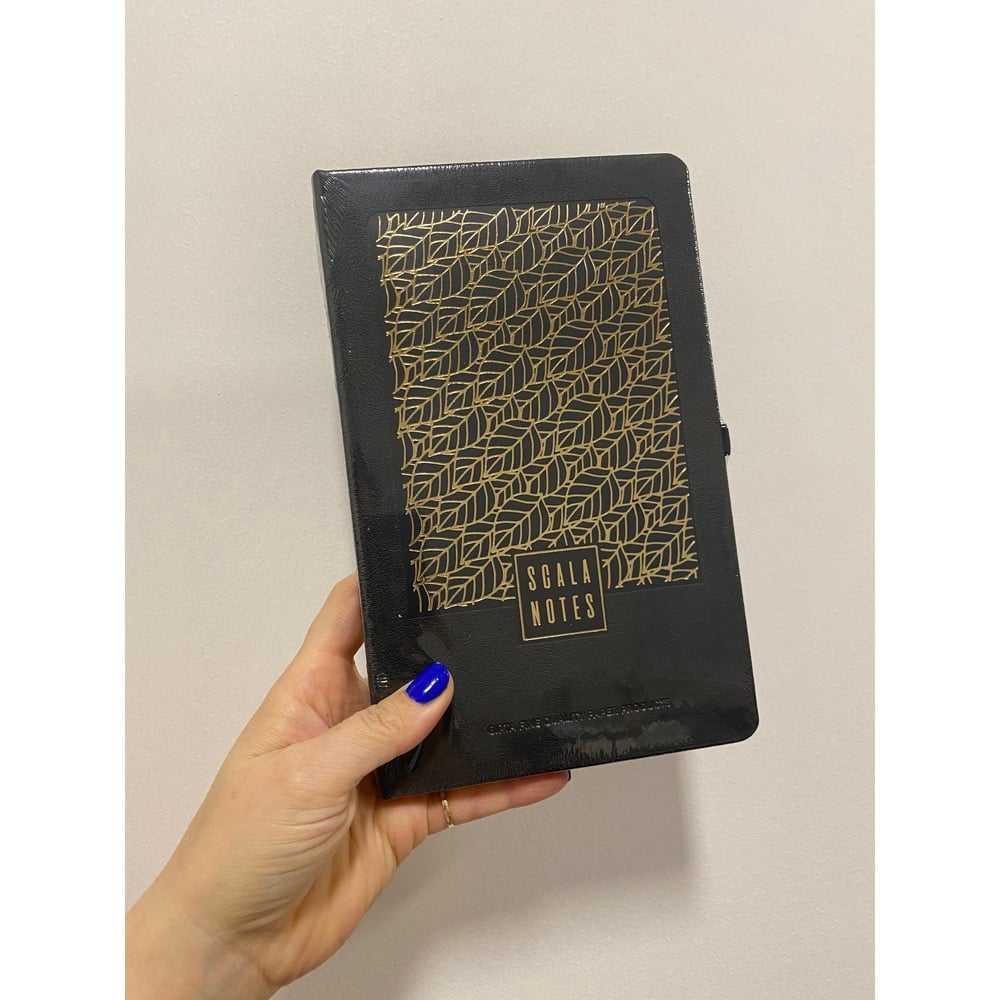 SCALA
NOTES
GIPTA FINE QUALITY PAPER PRODUCTS